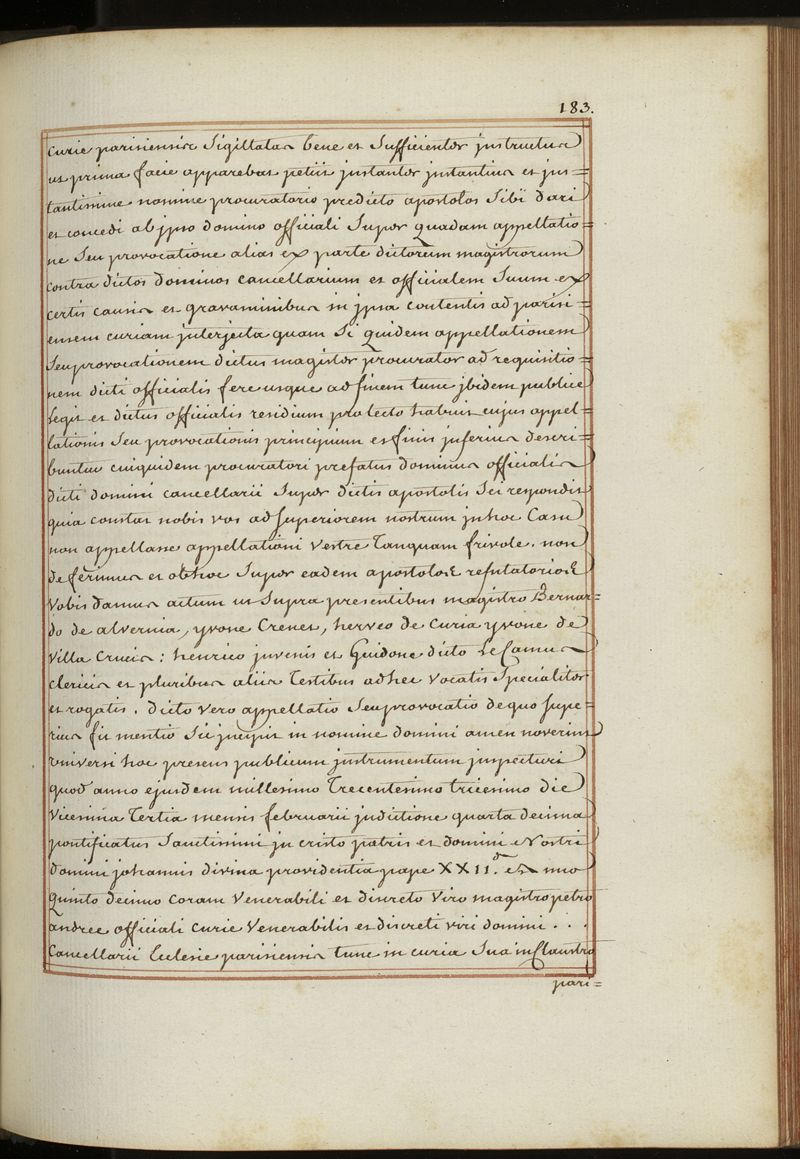 183.
Curie parisiensis Sigillatas bene et Sufficienter instructus
ut prima facie apparebat petiit instanter instantius et ins=
tantissime nomine procuratorio predicto apostolos Sibi dari
et concedi ab ipso domino officiali Super quadam appellatio=
ne Seu provocatione alias ex parte dictorum magistrorum
contra dictos dominos cancellarium et officialem Suum ex
certis causis et gravaminibus in ipsa contentis ad parisi=
ensem curiam interjecta quam Si quidem appellationem
Seu provocationem dictus magister procurator ad requisitio=
nem dicti officialis fere usque ad finem tunc jbidem publice
legit et dictus officialis residium pro lecto habuit cujus appel=
lationis Seu provocationis principium et finis inferius descri=
buntur cuiquidem procuratori prefatus dominus officialis
dicti domini cancellarii Super dictis apostolis Sic respondit
quia constat nobis vos ad Superiorem nostrum in hoc Casu
non appellasse appellationi Vestre Tanquam frivole. non
deferimus et ob hoc Super eadem apostolos refutatorios
Vobis damus actum ut Supra presentibus magistro Bernar=
do de alvernia, yvone Crenet, herveo de Curia yvone de
Villa Crucis: henrico juvenis et Guidone dicto Le Camus
clericis et pluribus aliis Testibus ad hec Vocatis Specialiter
et rogatis. dicto vero appellatio Seu provocatio de quo Supe=
rius fit mentio Sic jncipit in nomine domini amen noverint
Universi hoc presens publicum jnstrumentum jnspecturi
quod anno ejusdem millesimo Trecentesimo tricesimo die
Vicesima Tertia mensis februarii indictione quarta decima
pontificatus Sanctissimi in cristo patris et domini Nostri
domini johannis divina providentia pape XXII.di anno
Quinto decimo Coram Venerabili et discreto Viro magistro petro
andree officiali Curie Venerabilis et discreti viri domini . . .
Cancellarii Eclesie parisiensis tunc in curia Sua in Claustro
pari=